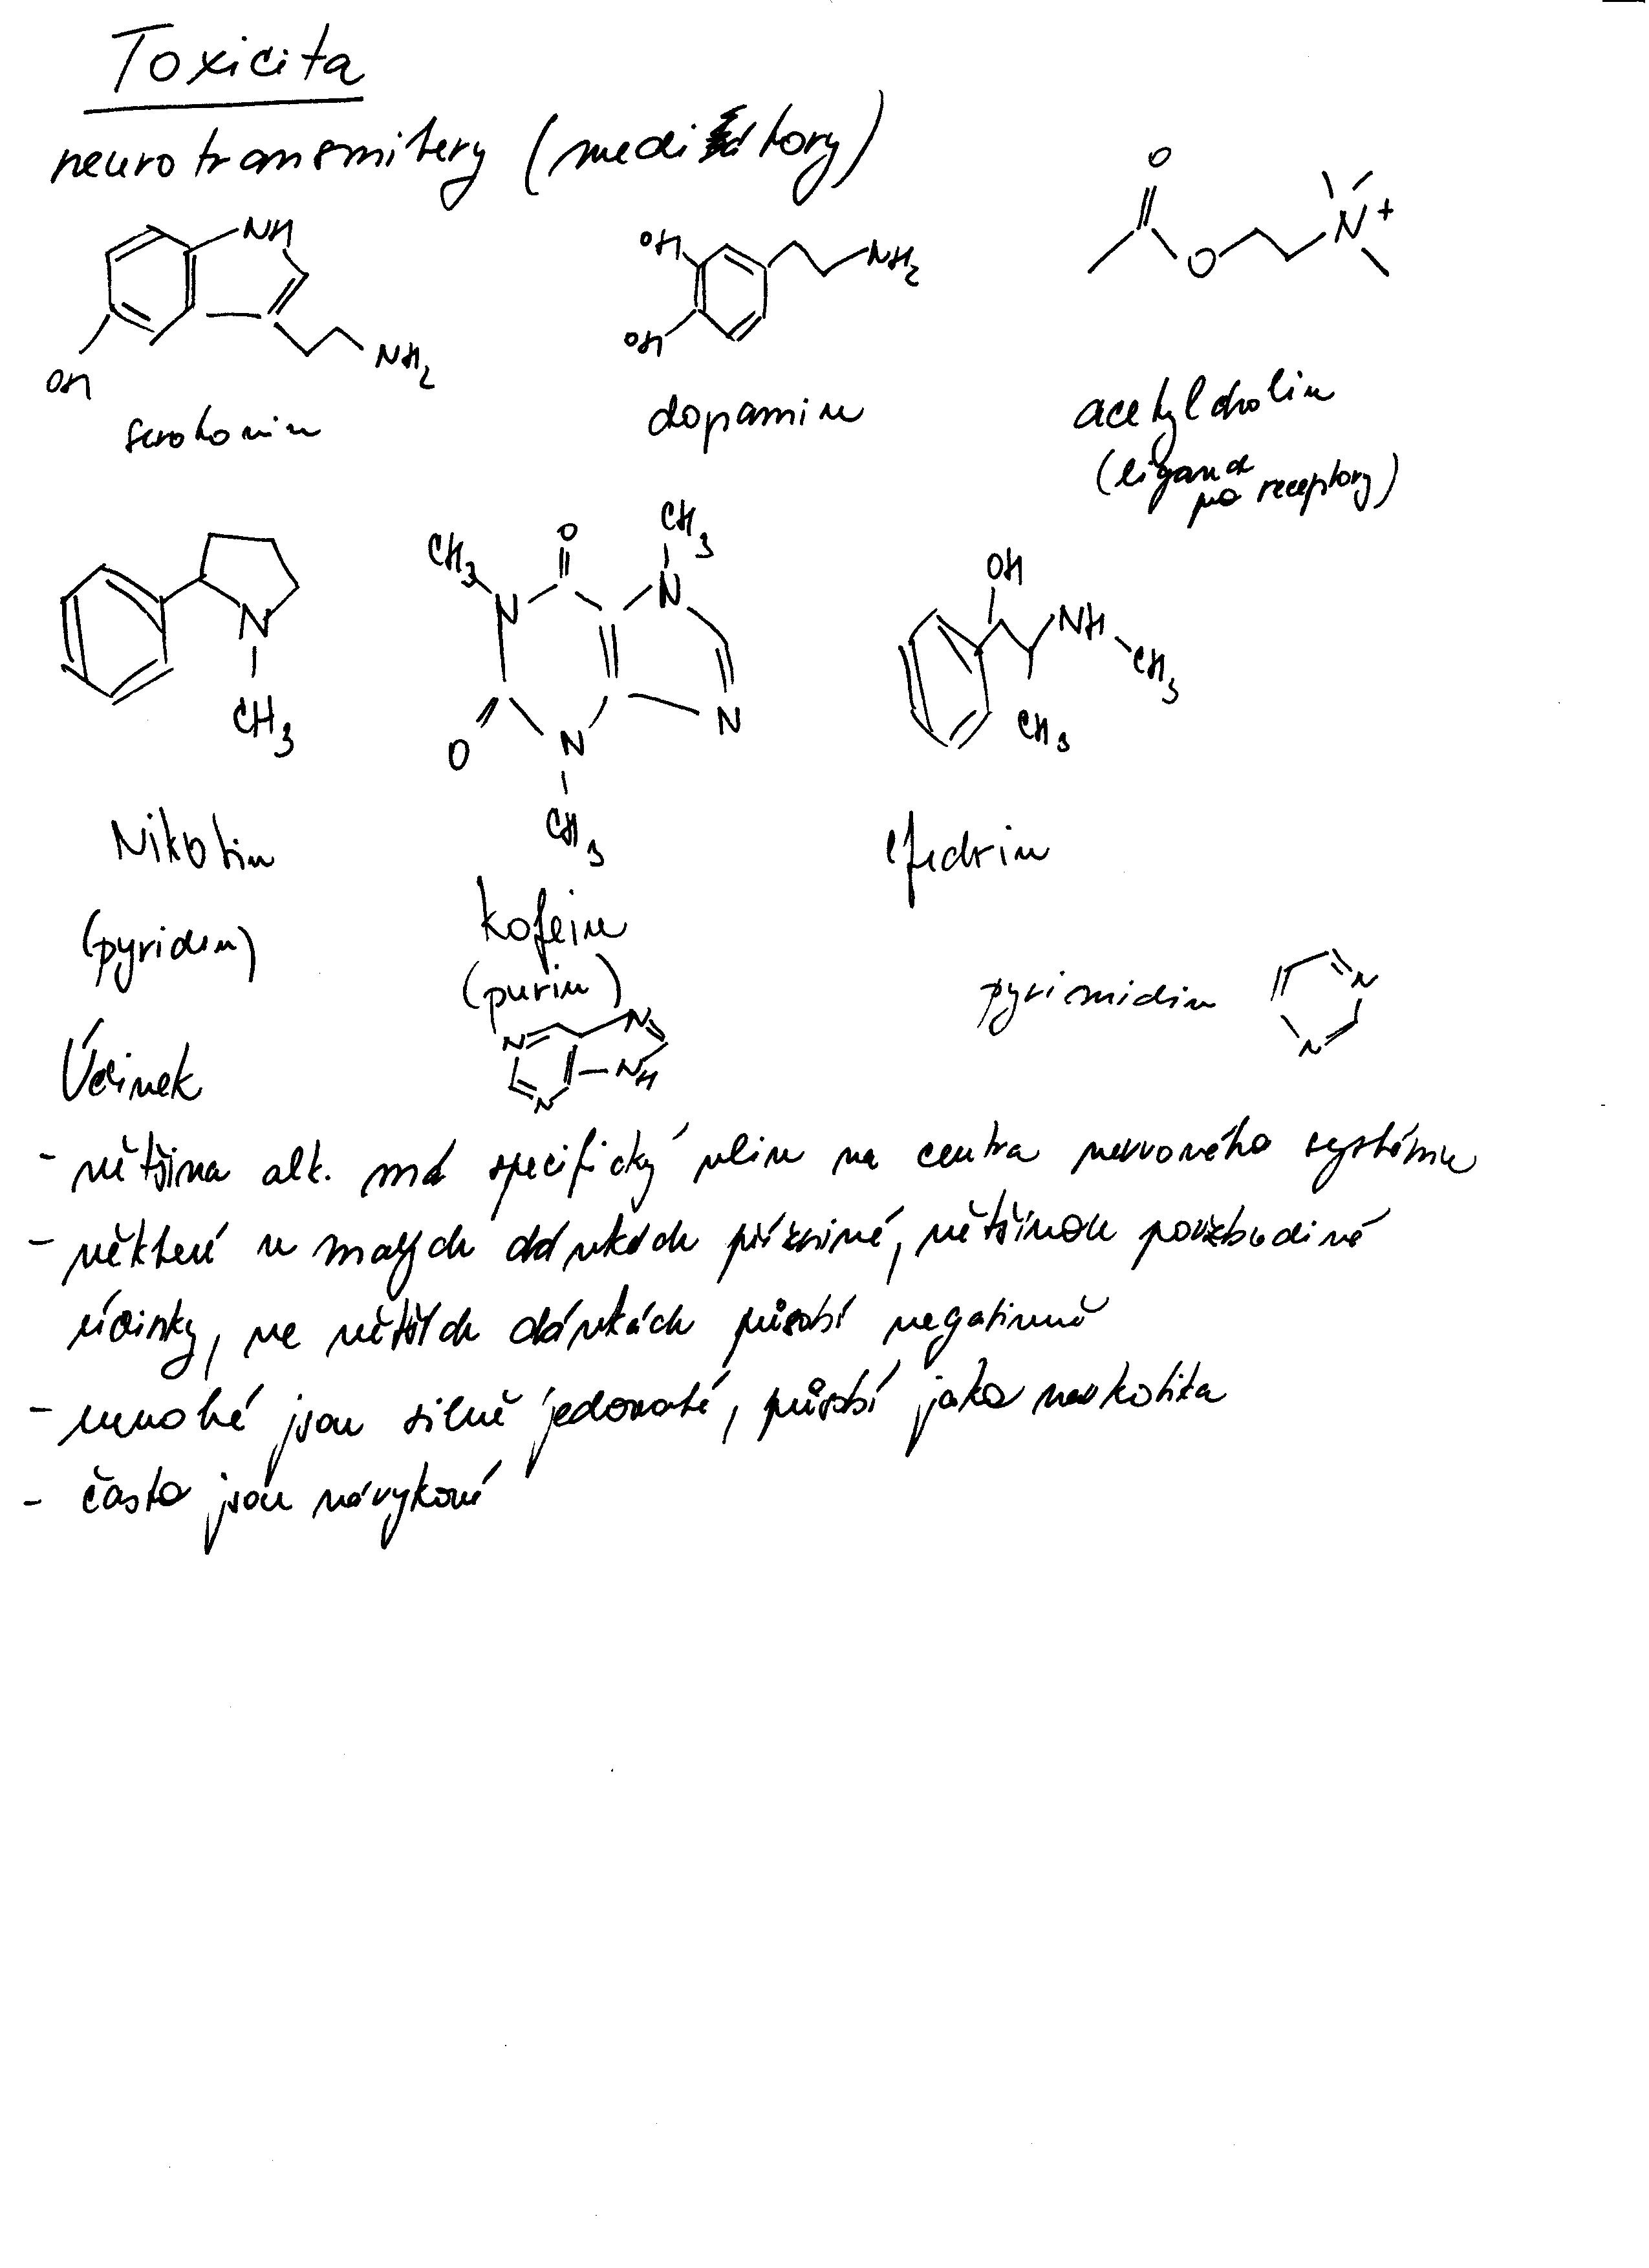 Toxicita
neurotransmitery (mediátory)
NH
OH
NH2
serotonin
OH
OH
NH2
dopamin
O
O
N+
acetylcholin
(ligand
pro receptory)
N
CH3
Nikotin
(pyridin)
CH3
O
CH3
N
N
O
N
N
CH3
kofein
(purin)
N
N
N
NH
OH
NH
CH3
CH3
efedrin
pyrimidin
N
N
Účinek
- většina alk. má specifický vliv na centra nervového systému
- některé v malých dávkách příznivé, většinou povzbudivé
účinky, ve větších dávkách působí negativně
- mnohé jsou silně jedovaté, působí jako narkotika
- často jsou návykové